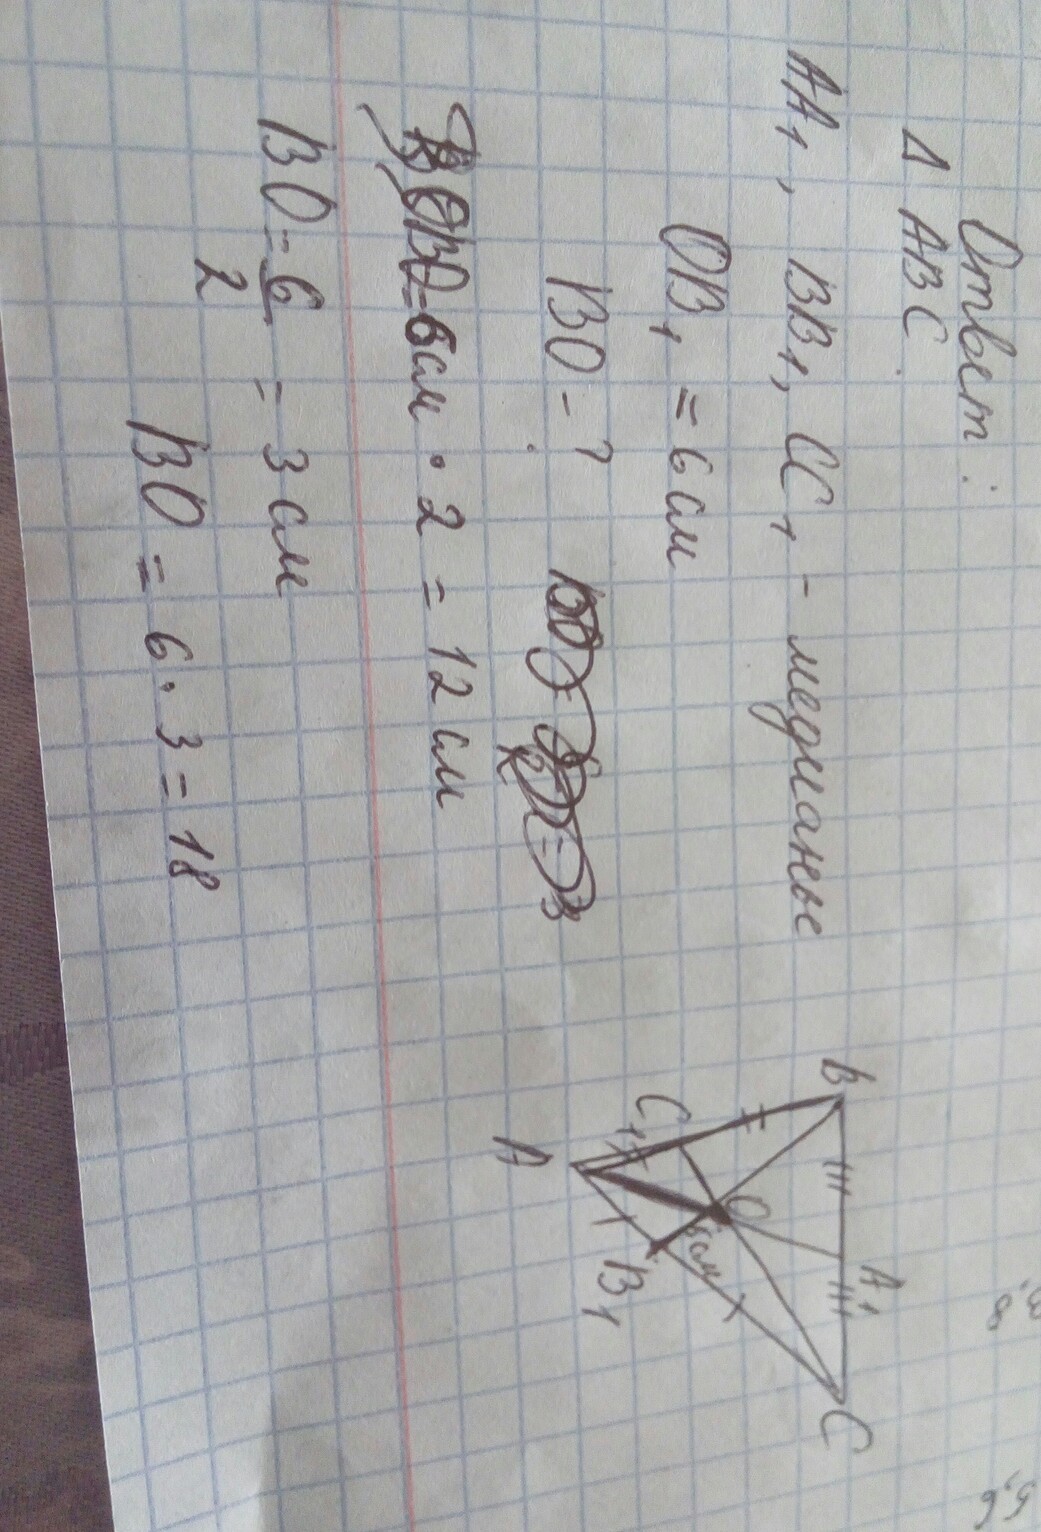 Ответ:
Δ ABC
AA₁, BB₁, CC₁ - медианы
OB₁ = 6 см
BO - ?
BO = 6 см · 2 = 12 см
BO = 6/2 = 3 см
BO = 6 · 3 = 18
B
A₁
C
C₁
O
6 см
A
B₁
5,6